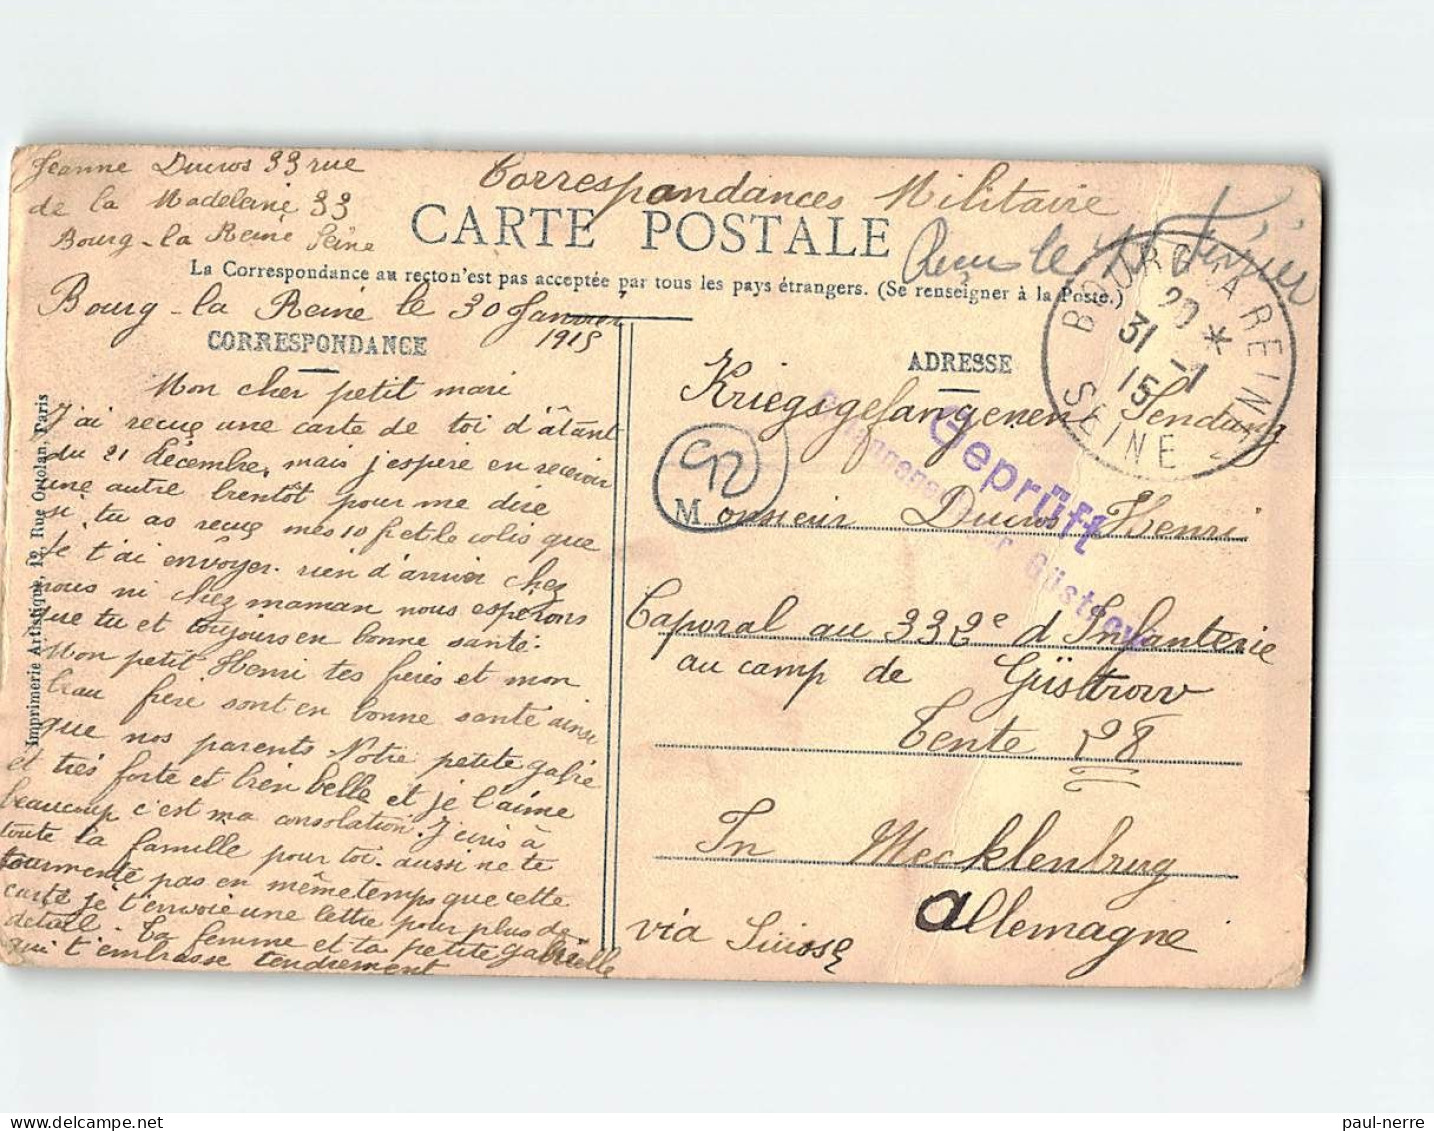 Jeanne Ducros 33 rue
de la Madeleine 33
Bourg-la Reine Seine
Correspondances Militaire
CARTE POSTALE
Reçus le
La Correspondance au recto n'est pas acceptée par tous les pays étrangers. (Se renseigner à la Poste.)
BOURG LA REINE
20 *
31 -1
15
SEINE
Bourg-la Reine le 30 Janvier
1915
CORRESPONDANCE
Mon cher petit mari
J'ai reçue une carte de toi d'âtant
du 21 décembre, mais j'espère en recevoir
une autre bientôt pour me dire
si tu as reçue mes 10 f et le colis que
je t'ai envoyer. rien d'arriver chez
nous ni chez maman nous espérons
que tu et toujours en bonne santé.
Mon petit Henri tes frères et mon
beau frère sont en bonne santé ainsi
que nos parents. Notre petite gabie
et très forte et bien belle et je l'aime
beaucoup c'est ma consolation. J'écris à
toute la famille pour toi. aussi ne te
tourmente pas en même temps que cette
carte je t'envoie une lettre pour plus de
détail. Ta femme et ta petite gabrielle
qui t'embrasse tendrement
Imprimerie Artistique, 12, Rue Ortolan, Paris
ADRESSE
Kriegsgefangenen Sendung
Geprüft
Güstrow
92
Monsieur Ducros Henri
Caporal au 332e d Infanterie
au camp de Güstroww
Tente 28
In Mecklenbrug
allemagne
via Suisse
paul-nerre